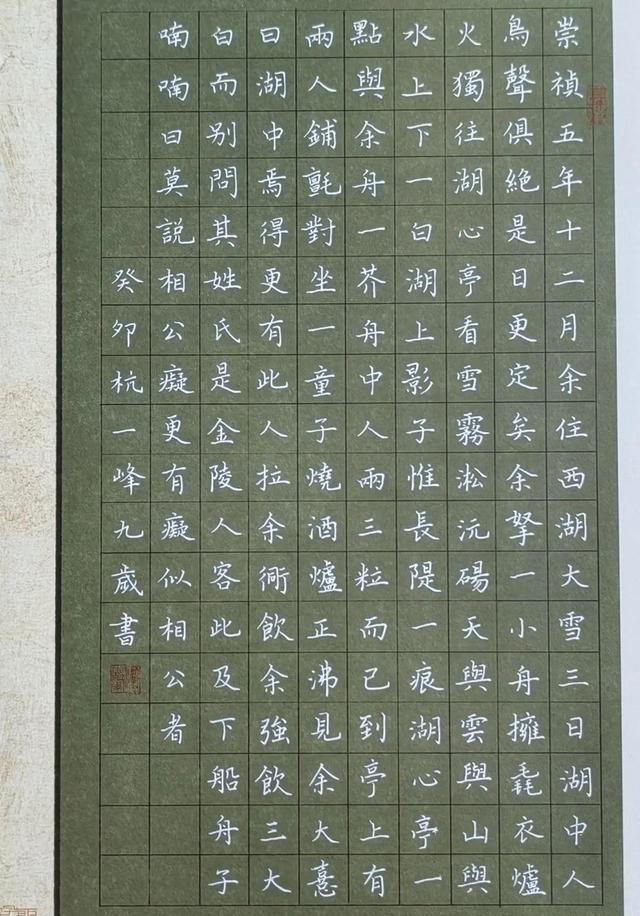 崇禎五年十二月余住西湖大雪三日湖中人
鳥聲俱絕是日更定矣余拏一小舟擁毳衣爐
火獨往湖心亭看雪霧淞沆碭天與雲與山與
水上下一白湖上影子惟長隄一痕湖心亭一
點與余舟一芥舟中人兩三粒而已到亭上有
兩人鋪氈對坐一童子燒酒爐正沸見余大憙
曰湖中焉得更有此人拉余同飲余強飲三大
白而别問其姓氏是金陵人客此及下船舟子
喃喃曰莫説相公癡更有癡似相公者
癸卯杭一峰九歲書